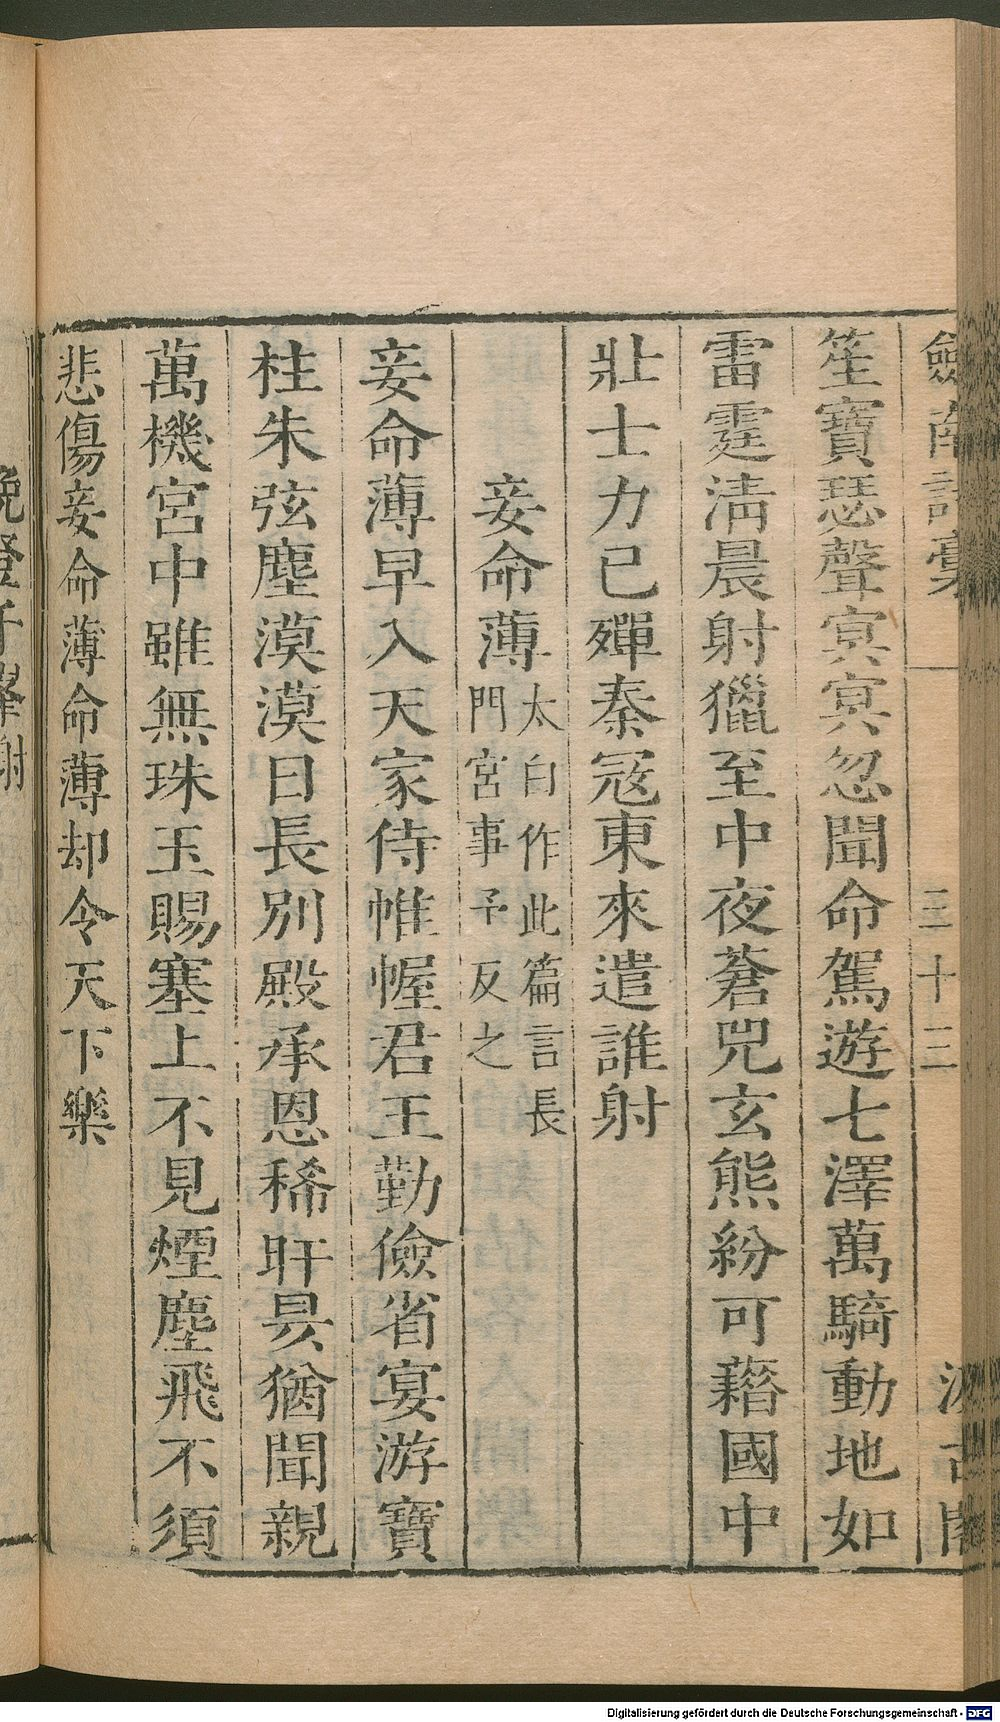 劍南詩稾
三十三
汲古閣
笙寶瑟聲㝠㝠忽聞命駕遊七澤萬騎動地如
雷霆淸晨射獵至中夜蒼兕玄熊紛可藉國中
壯士力已殫秦冦東來遣誰射
妾命薄
太白作此篇言長
門宮事予反之
妾命薄早入天家侍帷幄君王勤儉省宴游寶
柱朱弦塵漠漠日長別殿承恩稀旰昃猶聞親
萬機宮中雖無珠玉賜塞上不見煙塵飛不須
悲傷妾命薄命薄却令天下樂
Digitalisierung gefördert durch die Deutsche Forschungsgemeinschaft - DFG